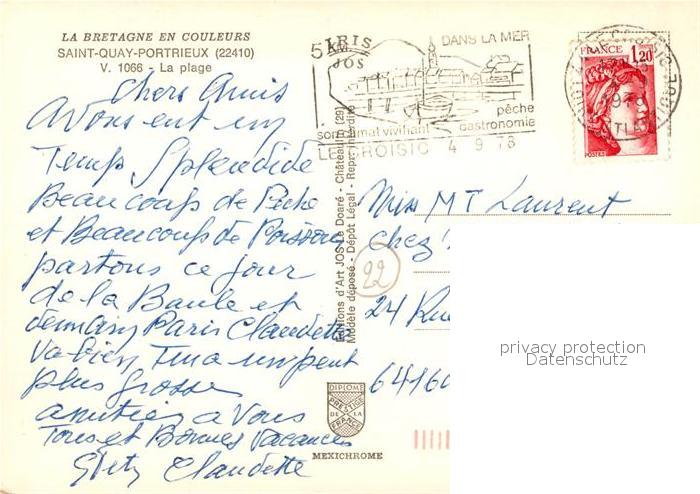 LA BRETAGNE EN COULEURS
SAINT-QUAY-PORTRIEUX (22410)
V. 1066 - La plage
Chers Amis
Avons eut un
Temps Splendide
Beaucoup de Pêche
et Beaucoup de Poissons
partons ce jour
de la Baule et
demain Paris Claudette
va bien Tina un peut
plus grosse
amitiés a Vous
Tous et Bonnes Vacances
Claudette
5 KM
DANS LA MER
pêche
vivifiant gastronomie
LE CROISIC 4 9 78
FRANCE
1,20
POSTES
Editions d'Art JOS Le Doaré - Châteaulin (29)
Modèle déposé - Dépôt Légal - Repr. interdite
22
Miss M T Laurent
chez
24 Rue
64160
privacy protection
Datenschutz
DIPLOME
PRESTIGE
DE LA
FRANCE
MEXICHROME